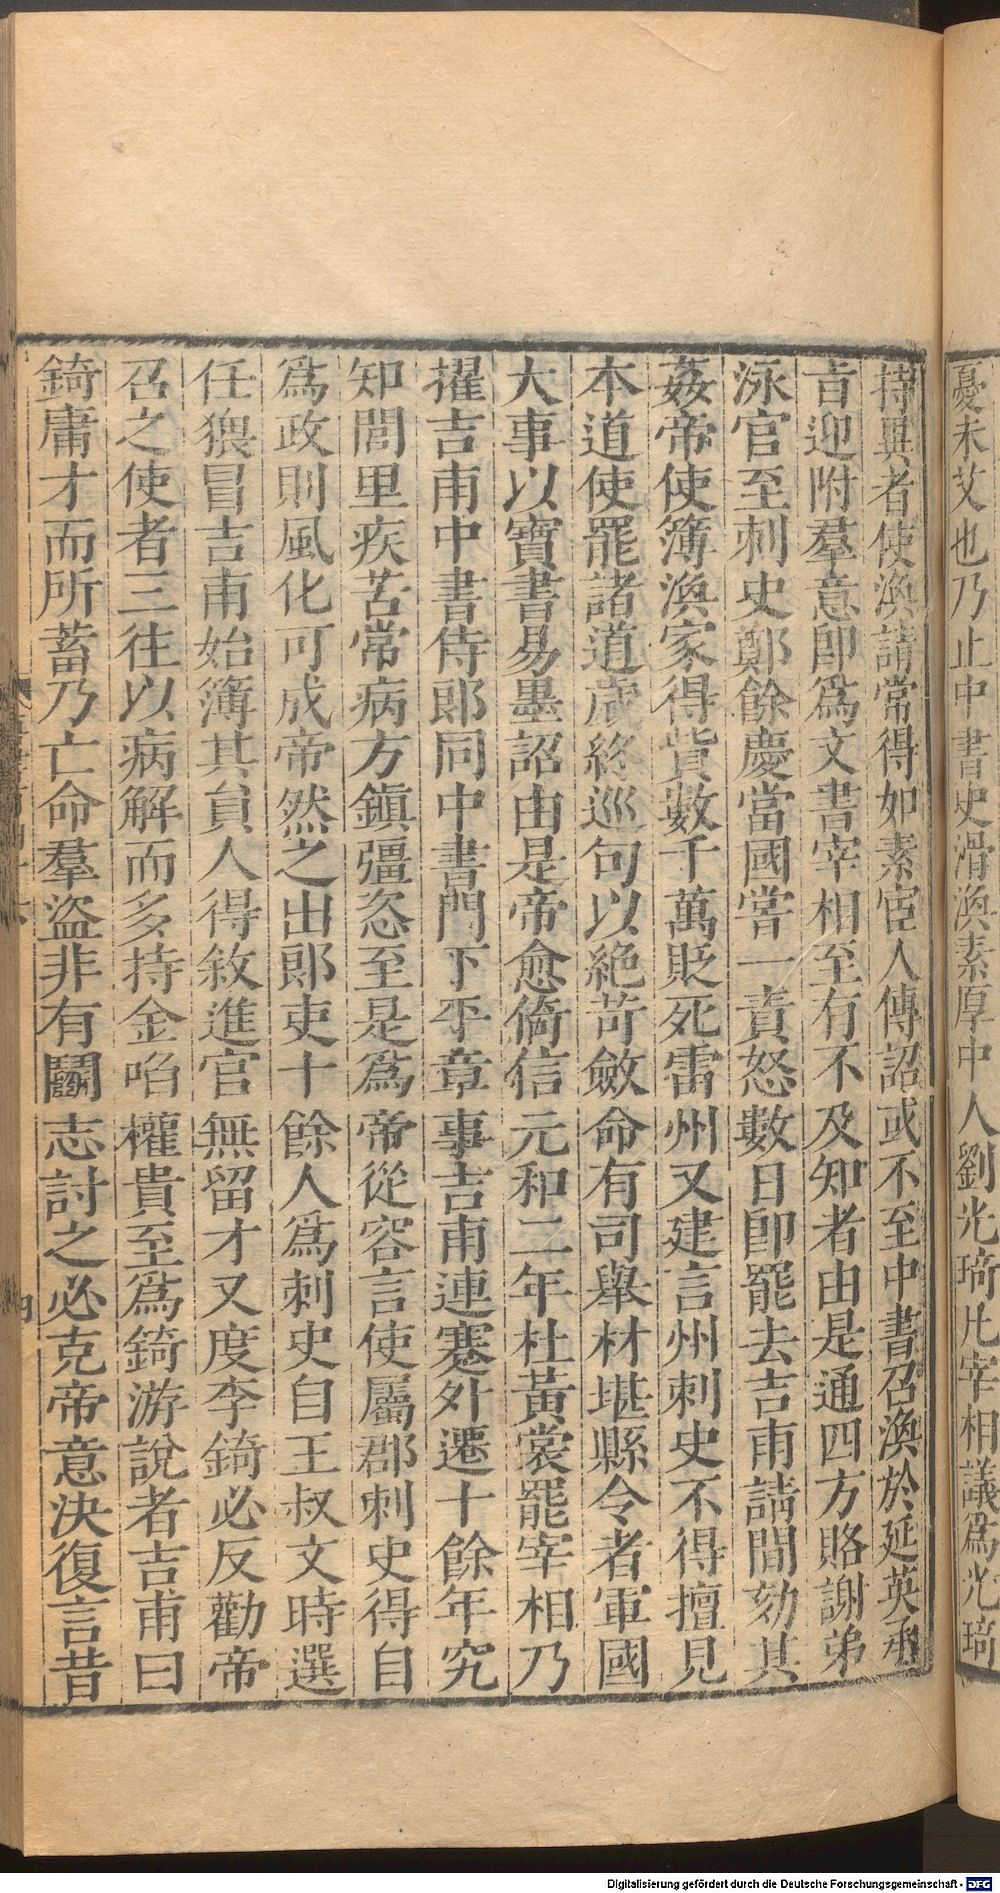 憂未艾也乃止中書史滑渙素厚中人劉光琦凡宰相議爲光琦
持異者使渙請常得如素宦人傳詔或不至中書召渙於延英承
旨迎附羣意卽爲文書宰相至有不及知者由是通四方賂謝弟
泳官至刺史鄭餘慶當國嘗一責怒數日卽罷去吉甫請間劾其
姦帝使簿渙家得貲數千萬貶死雷州又建言州刺史不得擅見
本道使罷諸道歲終巡句以絕苛斂命有司舉材堪縣令者軍國
大事以寶書易墨詔由是帝愈倚信元和二年杜黃裳罷宰相乃
擢吉甫中書侍郎同中書門下平章事吉甫連蹇外遷十餘年究
知閭里疾苦常病方鎮彊恣至是爲帝從容言使屬郡刺史得自
爲政則風化可成帝然之出郎吏十餘人爲刺史自王叔文時選
任猥冒吉甫始簿其員人得敘進官無留才又度李錡必反勸帝
召之使者三往以病解而多持金啗權貴至爲錡游說者吉甫曰
錡庸才而所蓄乃亡命羣盜非有鬭志討之必克帝意決復言昔
四
Digitalisierung gefördert durch die Deutsche Forschungsgemeinschaft - DFG